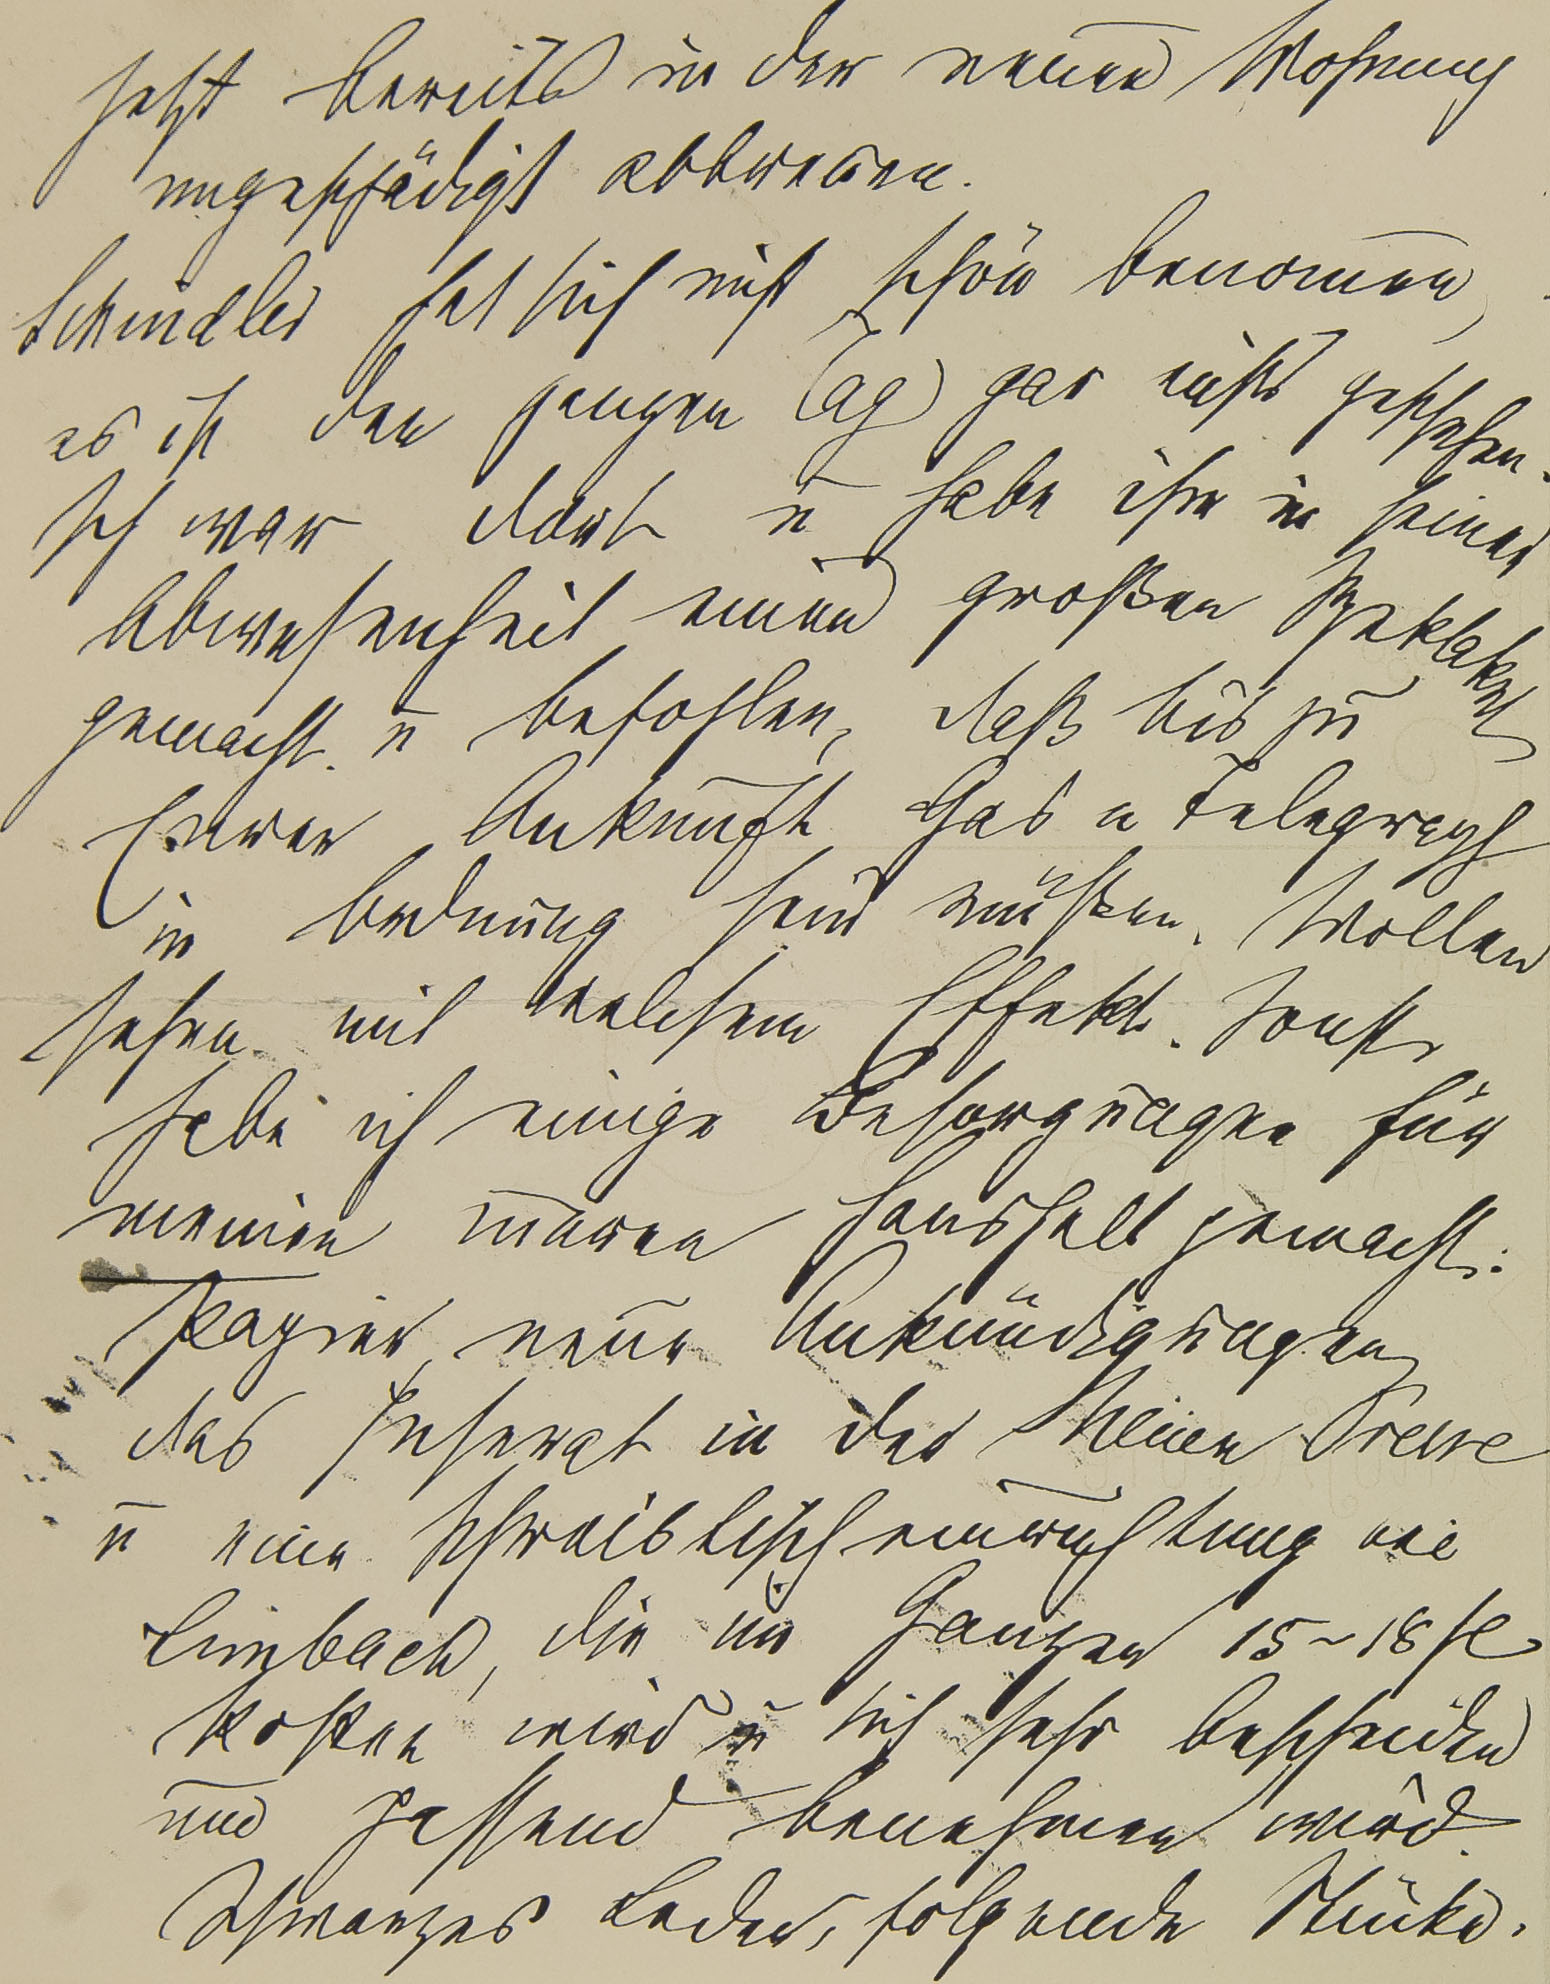 jetzt bereits in der neuen Wohnung
ungeschädigt abbrennen.
Schindler hat sich nicht schön benommen,
es ist den ganzen Tag gar nichts geschehen.
Ich war dort u habe ihm in seiner
Abwesenheit einen großen Spektakel
gemacht u befohlen, daß bis zu
Eurer Ankunft Gas u Telegraph
in Ordnung sein müssen. Wollen
sehen mit welchem Effekt. Sonst
habe ich einige Besorgungen für
meinen inneren Haushalt gemacht:
Papier, neue Ankündigungen
das Inserat in der Neuen Presse
u eine Schreibtischeinrichtung bei
Limbach, die im Ganzen 15~18 fl
kosten wird u sich sehr bescheiden
und passend benehmen wird.
Schwarzes Leder, folgende Stücke.